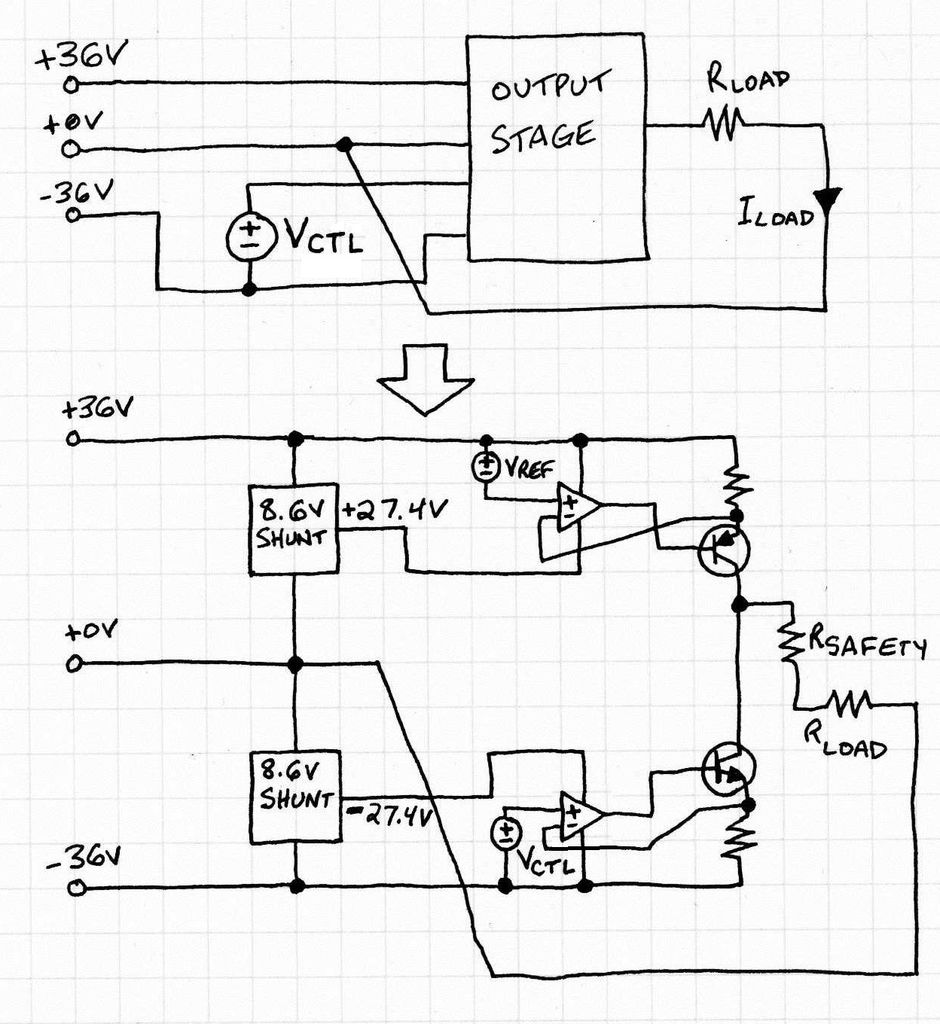 +36V
+0V
-36V
+
-
VCTL
OUTPUT
STAGE
RLOAD
ILOAD
+36V
+
-
VREF
+
-
8.6V
SHUNT
+27.4V
+0V
RSAFETY
RLOAD
8.6V
SHUNT
-27.4V
+
-
+
-
VCTL
-36V